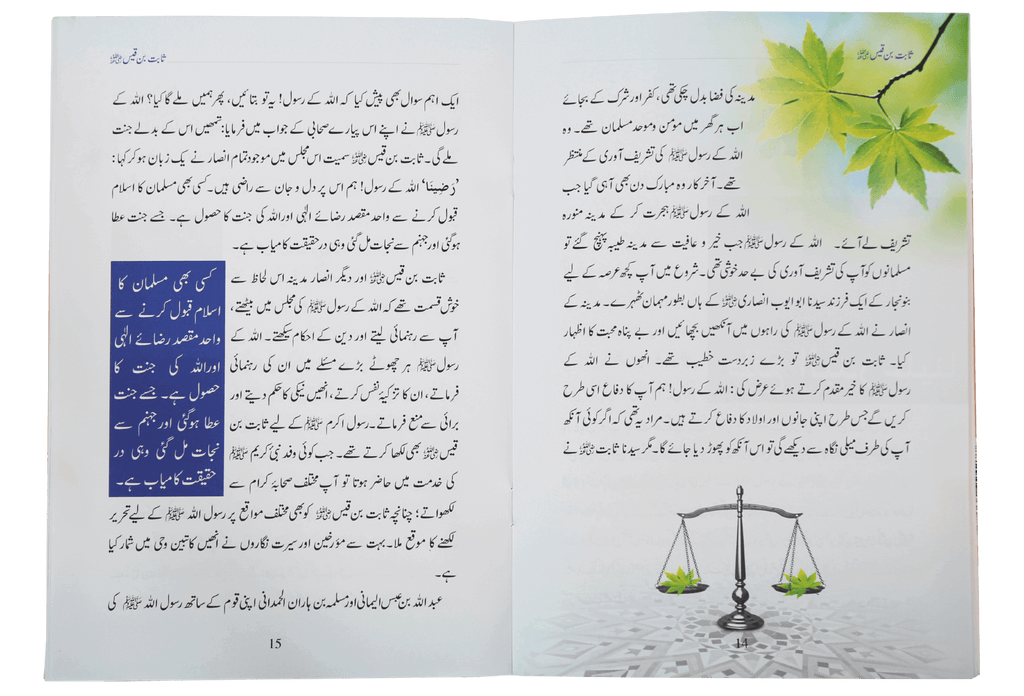 ثابت بن قیس رضی اللہ عنہ
مدینہ کی فضا بدل چکی تھی، کفر اور شرک کے بجائے
اب ہر گھر میں مومن و موحد مسلمان تھے۔ وہ
اللہ کے رسول ﷺ کی تشریف آوری کے منتظر
تھے۔ آخر کار وہ مبارک دن بھی آ ہی گیا جب
اللہ کے رسول ﷺ ہجرت کر کے مدینہ منورہ
تشریف لے آئے۔ اللہ کے رسول ﷺ جب خیر و عافیت سے مدینہ طیبہ پہنچ گئے تو
مسلمانوں کو آپ کی تشریف آوری کی بے حد خوشی تھی۔ شروع میں آپ کچھ عرصہ کے لیے
بنو نجار کے ایک فرزند سیدنا ابو ایوب انصاری رضی اللہ عنہ کے ہاں بطور مہمان ٹھہرے۔ مدینہ کے
انصار نے اللہ کے رسول ﷺ کی راہوں میں آنکھیں بچھائیں اور بے پناہ محبت کا اظہار
کیا۔ ثابت بن قیس رضی اللہ عنہ تو بڑے زبردست خطیب تھے۔ انھوں نے اللہ کے
رسول ﷺ کا خیر مقدم کرتے ہوئے عرض کی: اللہ کے رسول! ہم آپ کا دفاع اسی طرح
کریں گے جس طرح اپنی جانوں اور اولاد کا دفاع کرتے ہیں۔ مراد یہ تھی کہ اگر کوئی آنکھ
آپ کی طرف میلی نگاہ سے دیکھے گی تو اس آنکھ کو پھوڑ دیا جائے گا۔ مگر سیدنا ثابت رضی اللہ عنہ نے
14
ثابت بن قیس رضی اللہ عنہ
ایک اہم سوال بھی پیش کیا کہ اللہ کے رسول! یہ تو بتائیں، پھر ہمیں ملے گا کیا؟ اللہ کے
رسول ﷺ نے اپنے اس پیارے صحابی کے جواب میں فرمایا: تمھیں اس کے بدلے جنت
ملے گی۔ ثابت بن قیس رضی اللہ عنہ سمیت اس مجلس میں موجود تمام انصار نے یک زبان ہو کر کہا:
’رَضِينَا‘ اللہ کے رسول! ہم اس پر دل و جان سے راضی ہیں۔ کسی بھی مسلمان کا اسلام
قبول کرنے سے واحد مقصد رضائے الٰہی اور اللہ کی جنت کا حصول ہے۔ جسے جنت عطا
ہوگئی اور جہنم سے نجات مل گئی وہی در حقیقت کامیاب ہے۔
ثابت بن قیس رضی اللہ عنہ اور دیگر انصار مدینہ اس لحاظ سے
خوش قسمت تھے کہ اللہ کے رسول ﷺ کی مجلس میں بیٹھتے،
آپ سے رہنمائی لیتے اور دین کے احکام سیکھتے۔ اللہ کے
رسول ﷺ ہر چھوٹے بڑے مسئلے میں ان کی رہنمائی
فرماتے، ان کا تزکیۂ نفس کرتے، انھیں نیکی کا حکم دیتے اور
برائی سے منع فرماتے۔ رسول اکرم ﷺ کے لیے ثابت بن
قیس رضی اللہ عنہ بھی لکھا کرتے تھے۔ جب کوئی وفد نبی کریم ﷺ
کی خدمت میں حاضر ہوتا تو آپ مختلف صحابۂ کرام سے
لکھواتے؛ چنانچہ ثابت بن قیس رضی اللہ عنہ کو بھی مختلف مواقع پر رسول اللہ ﷺ کے لیے تحریر
لکھنے کا موقع ملا۔ بہت سے مؤرخین اور سیرت نگاروں نے انھیں کاتبین وحی میں شمار کیا
ہے۔
عبد اللہ بن عبس الیمانی اور مسلمہ بن ہاران الحمدانی اپنی قوم کے ساتھ رسول اللہ ﷺ کی
کسی بھی مسلمان کا
اسلام قبول کرنے سے
واحد مقصد رضائے الٰہی
اور اللہ کی جنت کا
حصول ہے۔ جسے جنت
عطا ہوگئی اور جہنم سے
نجات مل گئی وہی در
حقیقت کامیاب ہے۔
15